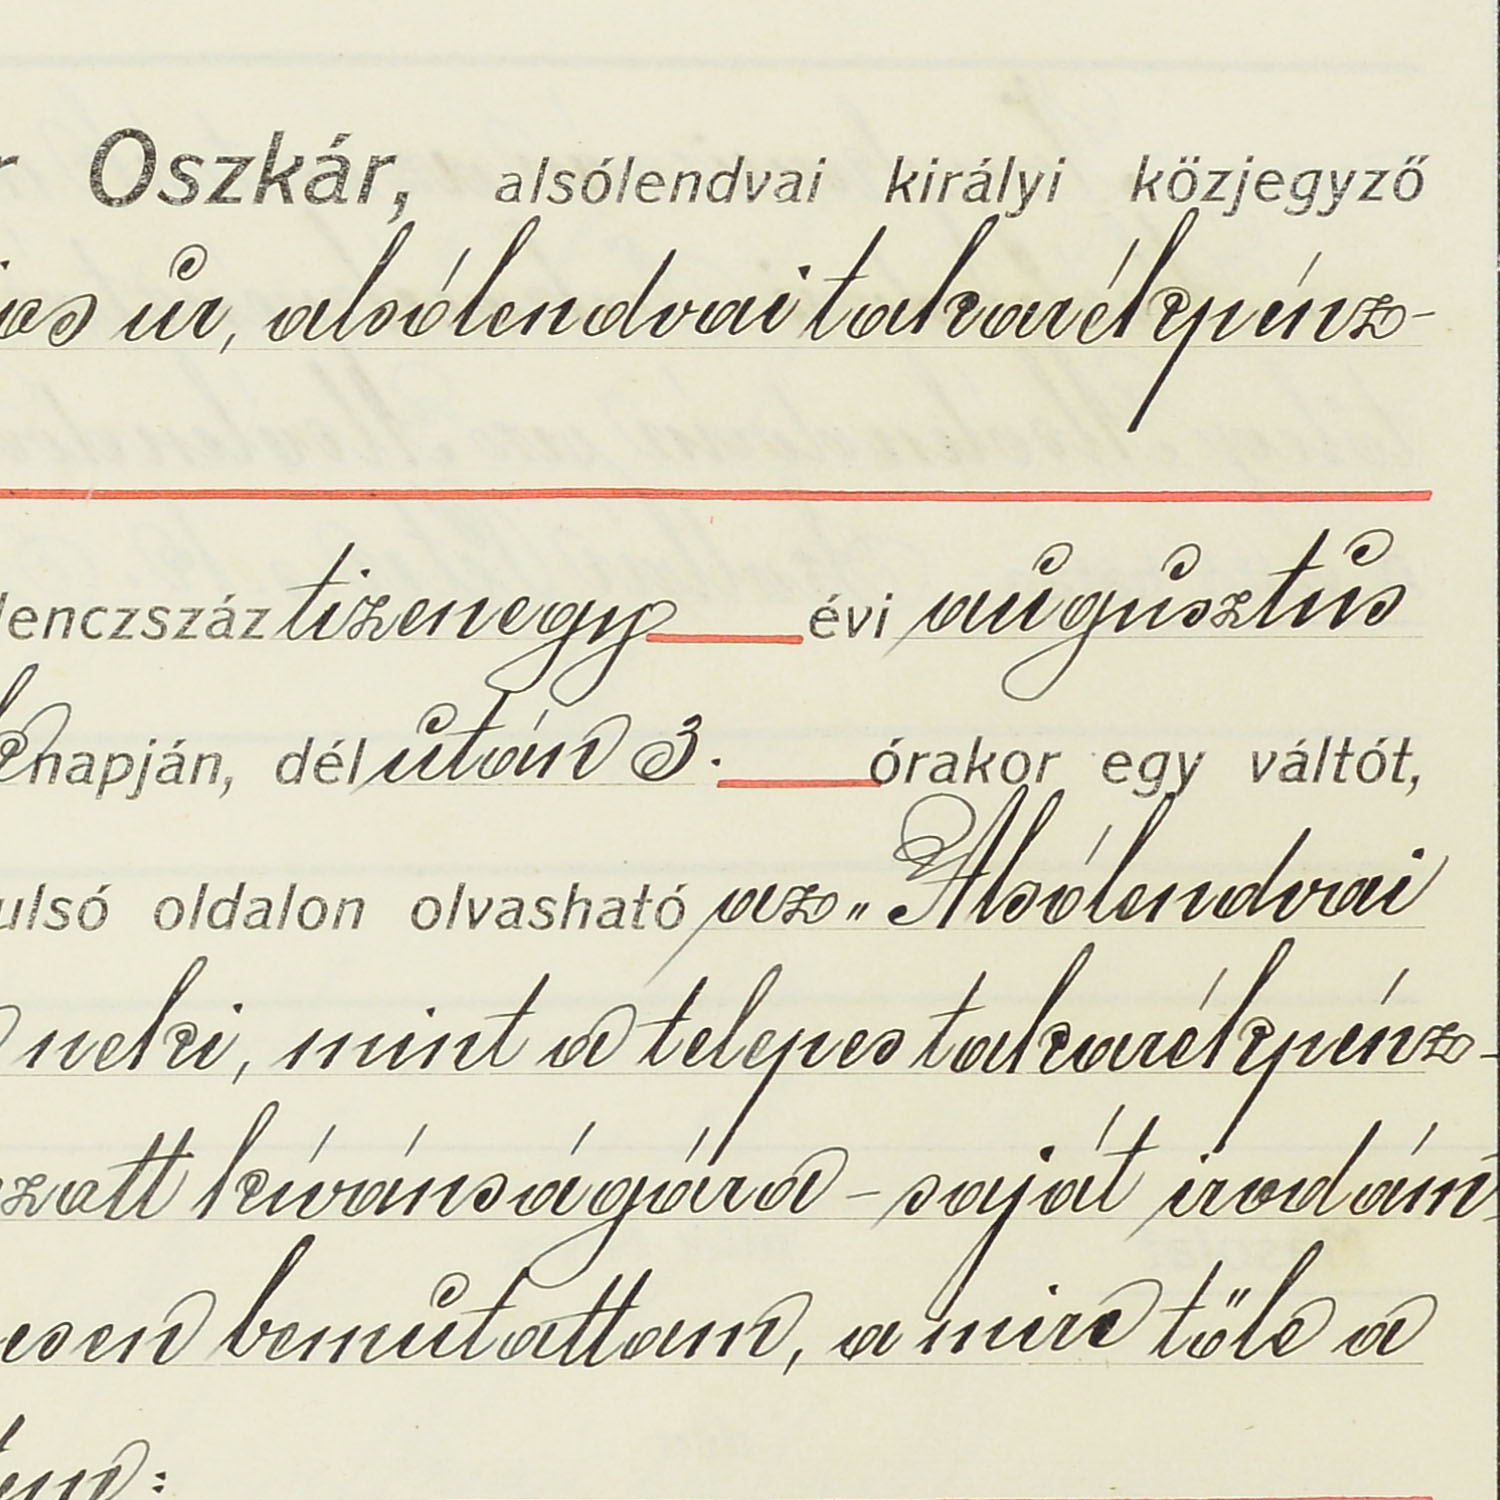 Oszkár, alsólendvai királyi közjegyző
úr, alsólendvai takarékpénz-
lenczszáz tizenegy évi augusztus
napján, dél után 3. órakor egy váltót,
ulsó oldalon olvasható az „Alsólendvai
neki, mint a telepes takarékpénz-
zatt kívánságára – saját irodám-
esen bemutattam, a mire tőle a